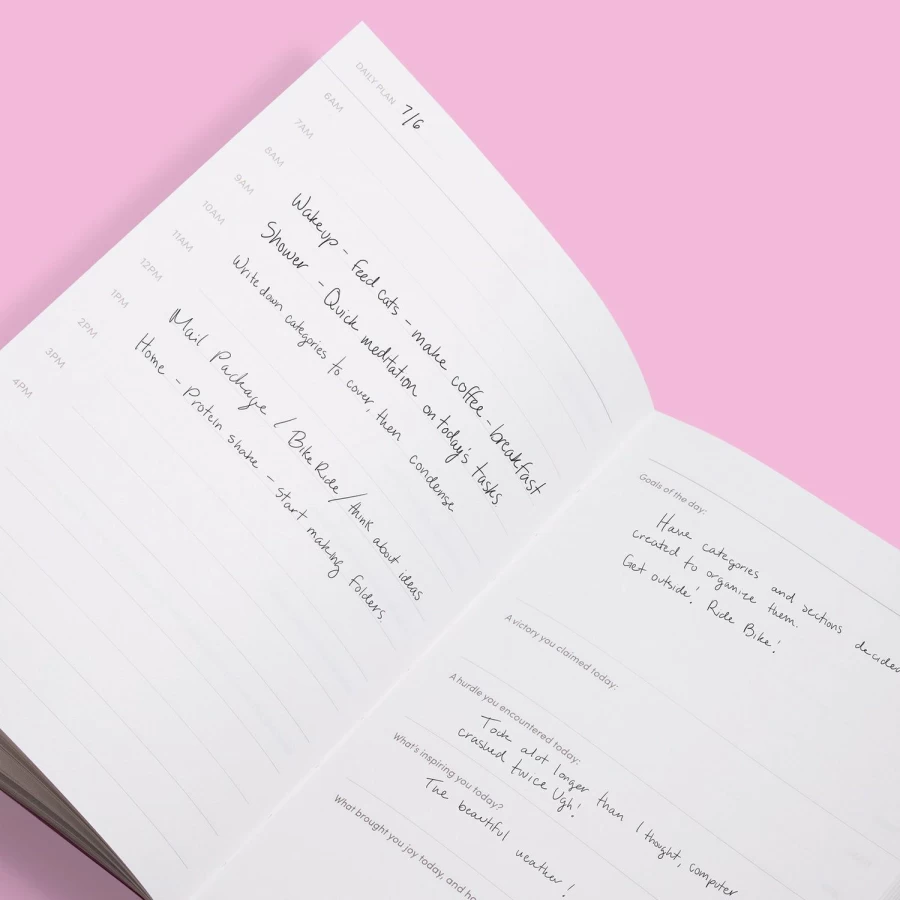 DAILY PLAN 7/6
6AM
7AM
8AM
9AM
10AM
11AM
12PM
1PM
2PM
3PM
4PM
Wakeup - feed cats - make coffee - breakfast
Shower - Quick meditation on today's tasks
Write down categories to cover, then condense
Mail Package / Bike Ride / think about ideas
Home - Protein shake - start making folders.
Goals of the day:
Have categories and sections decided
created to organize them.
Get outside! Ride Bike!
A victory you claimed today:
A hurdle you encountered today:
Took alot longer than I thought, computer
crashed twice Ugh!
What's inspiring you today?
The beautiful weather!
What brought you joy today, and ho